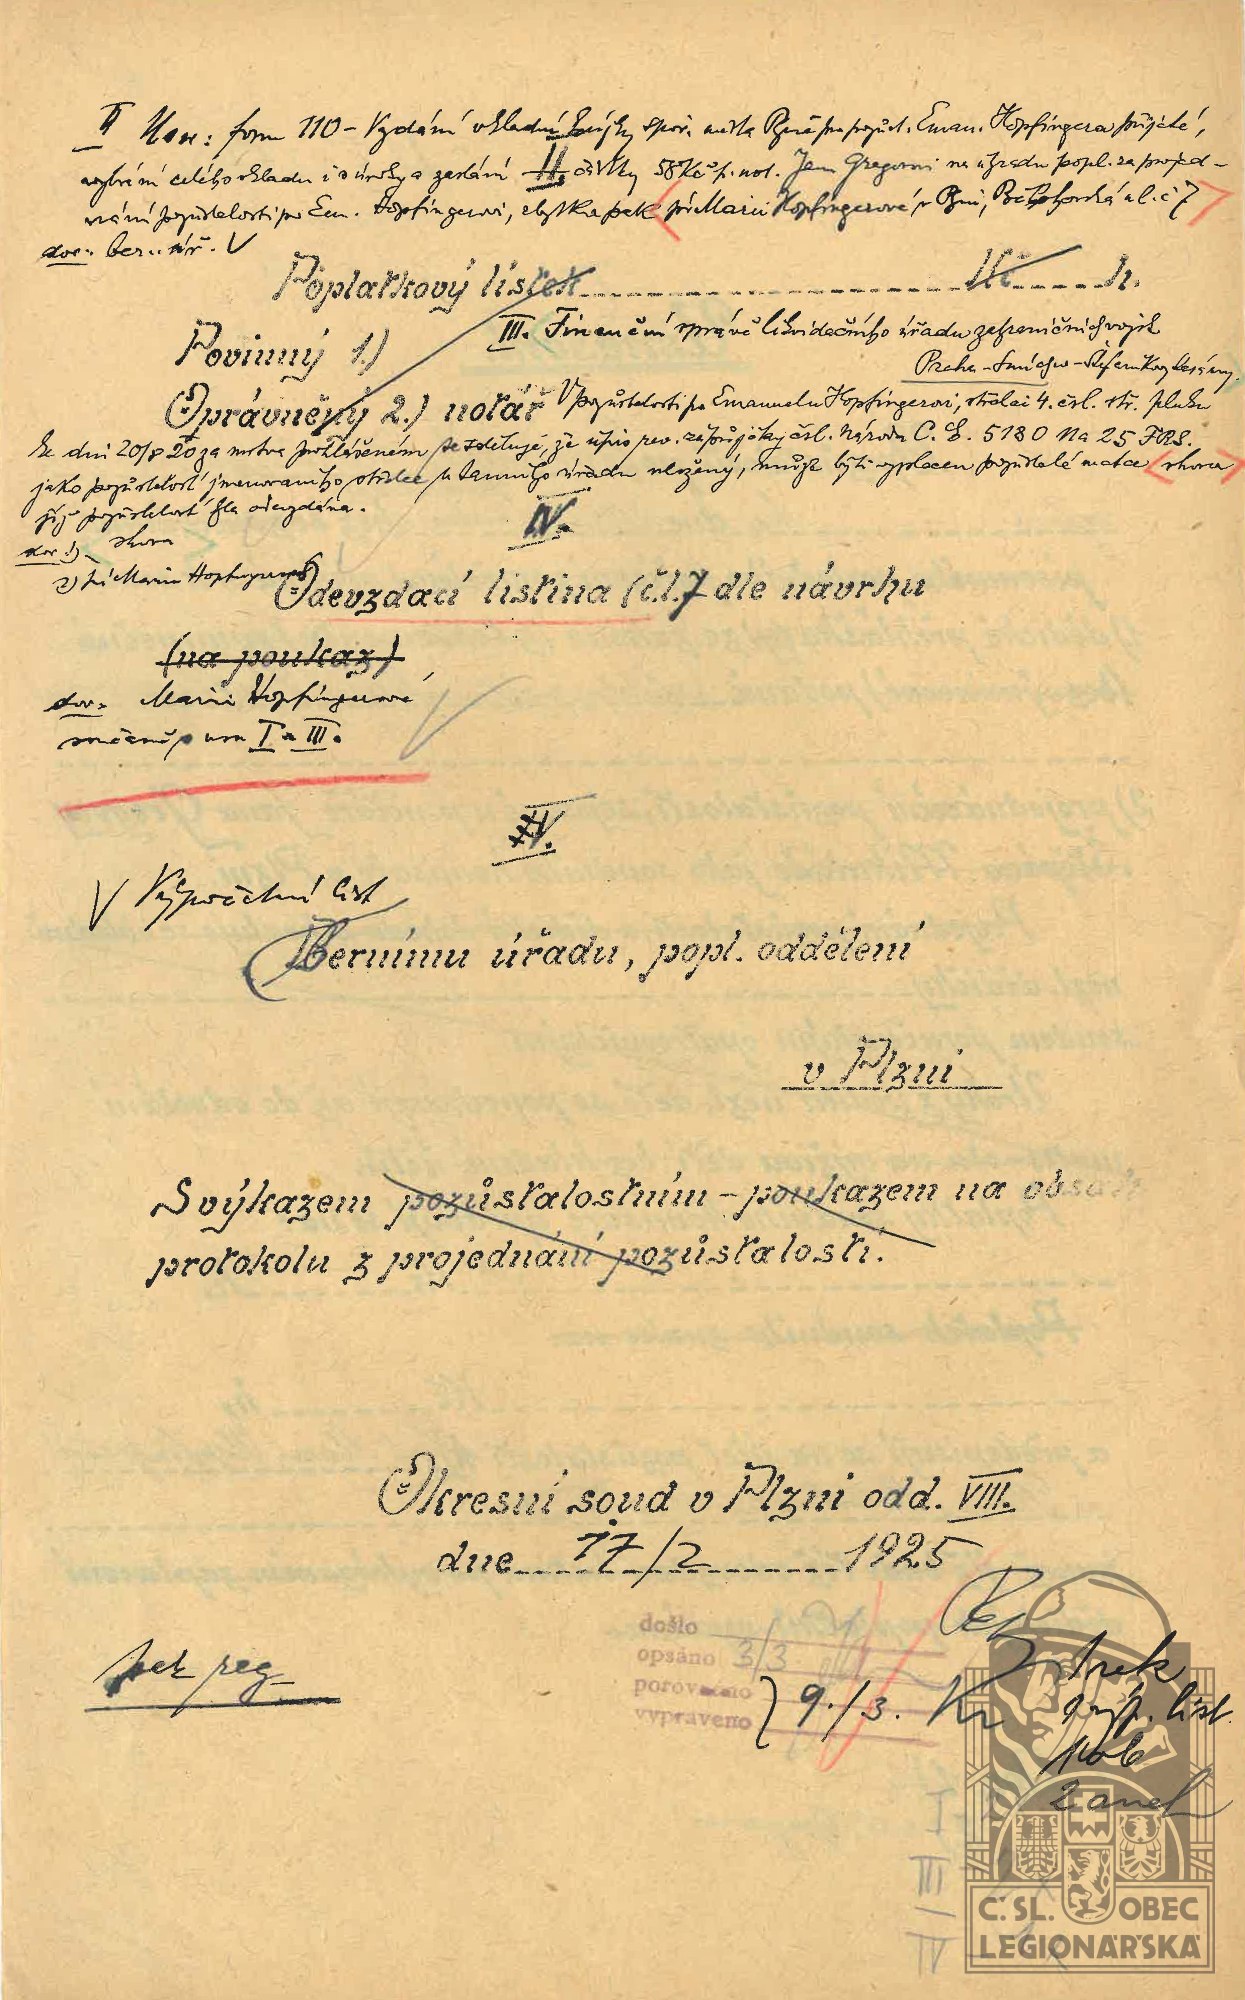 II form 110 – Vydání vkladní knížky spoř. města Plzně pro pozůst. Eman. Hopfingera přijaté,
vybrání celého vkladu i s úroky a zaslání částky 58 Kč p. not. Janu Gregorovi na úhradu popl. za projed-
nání pozůstalosti po Em. Hopfingerovi, zbytku pak při Marii Hopfingerové, v Plzni, ul. č 7
dor: ber. úř. V
Poplatkový lístek Kč h.
III. Finanční správě likvidačního úřadu zahraničních vojsk
Povinný 1.)
Praha – Smíchov – Štefanikovy kasárny.
Oprávněný 2.) notář V pozůstalosti po Emanuelu Hopfingerovi, střelci 4. čsl. stř. pluku
ke dni 20/8 20 za mrtva prohlášeném se sděluje, že úpis rev. zápůjčky čsl. národa C. 5180 na 25 FRS.
jako pozůstalost jmenovaného střelce u tamního úřadu uložený, může býti vyplacen pozůstalé matce shora
jíž pozůstalost byla odevzdána.
IV.
dor 1) shora
2) Marii Hopfingerové
Odevzdací listina (č.l. 7 dle návrhu
(na poukaz)
dor: Marii Hopfingerové
současně s I a III.
V.
V Výpočetní list
Bernímu úřadu, popl. oddělení
v Plzni
S výkazem pozůstalostním – poukazem na obsah
protokolu z projednání pozůstalosti.
Okresní soud v Plzni odd. VIII.
dne 17/2 1925
došlo
opsáno 3/3
porovnáno
vypraveno
9./3.
výp. list
I
III
IV
Č. SL. OBEC
LEGIONÁŘSKÁ